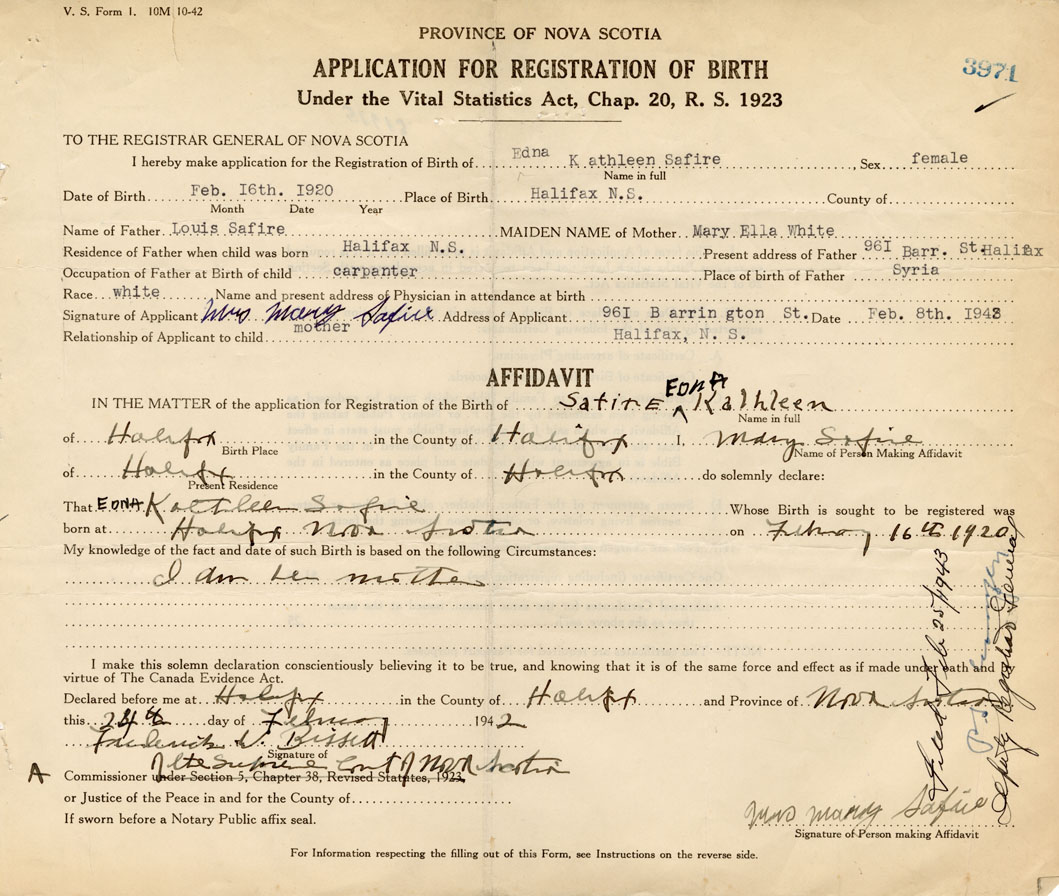 V. S. Form 1. 10M 10-42
PROVINCE OF NOVA SCOTIA
APPLICATION FOR REGISTRATION OF BIRTH
3971
Under the Vital Statistics Act, Chap. 20, R. S. 1923
TO THE REGISTRAR GENERAL OF NOVA SCOTIA
I hereby make application for the Registration of Birth of Edna K athleen Safire, Sex female
Name in full
Date of Birth Feb. I6th. I920 Place of Birth Halifax N.S. County of
Month Date Year
Name of Father Louis Safire MAIDEN NAME of Mother Mary Ella White
Residence of Father when child was born Halifax N.S. Present address of Father 96I Barr. St.Halifax
Occupation of Father at Birth of child carpanter Place of birth of Father Syria
Race white Name and present address of Physician in attendance at birth
Signature of Applicant Mrs Mary Safire Address of Applicant 96I B arrin gton St. Date Feb. 8th. I943
Relationship of Applicant to child mother Halifax, N. S.
AFFIDAVIT
IN THE MATTER of the application for Registration of the Birth of Safire EDNA Kathleen
Name in full
of Halifax in the County of Halifax I, Mary Safire
Birth Place Name of Person Making Affidavit
of Halifax in the County of Halifax do solemnly declare:
Present Residence
That EDNA Kathleen Safire Whose Birth is sought to be registered was
born at Halifax Nova Scotia on February 16th 1920
My knowledge of the fact and date of such Birth is based on the following Circumstances:
I am her mother
I make this solemn declaration conscientiously believing it to be true, and knowing that it is of the same force and effect as if made under oath and by
virtue of The Canada Evidence Act.
Declared before me at Halifax in the County of Halifax and Province of Nova Scotia
this 24th day of February 1942
Frederick W. Bissett
Signature of
of the Supreme Court of Nova Scotia
A Commissioner under Section 5, Chapter 38, Revised Statutes, 1923,
or Justice of the Peace in and for the County of
If sworn before a Notary Public affix seal.
Mrs Mary Safire
Signature of Person making Affidavit
For Information respecting the filling out of this Form, see Instructions on the reverse side.
Filed Feb 25/1943
Deputy Registrar General